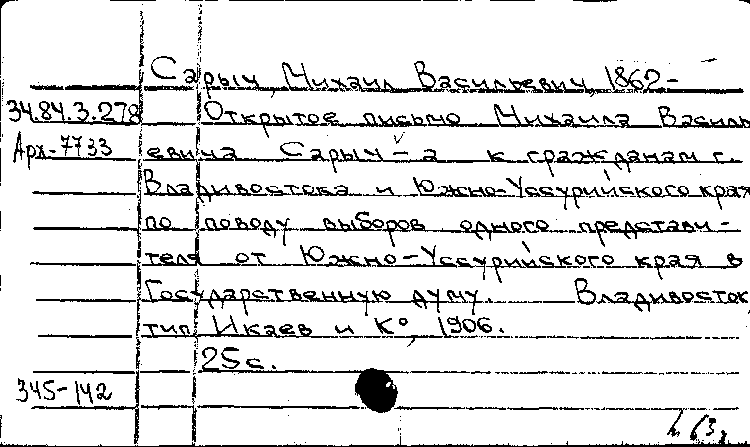 Сарыч, Михаил Васильевич, 1862-
34.84.3.278 Открытое письмо Михаила Василь
Арх.-7733 евича Сарыч-а к гражданам г.
Владивостока и Южно-Уссурийского края
по поводу выборов одного представи-
теля от Южно-Уссурийского края в
Государственную думу. Владивосток,
тип. Икаев и К°, 1906.
25с.
345-142